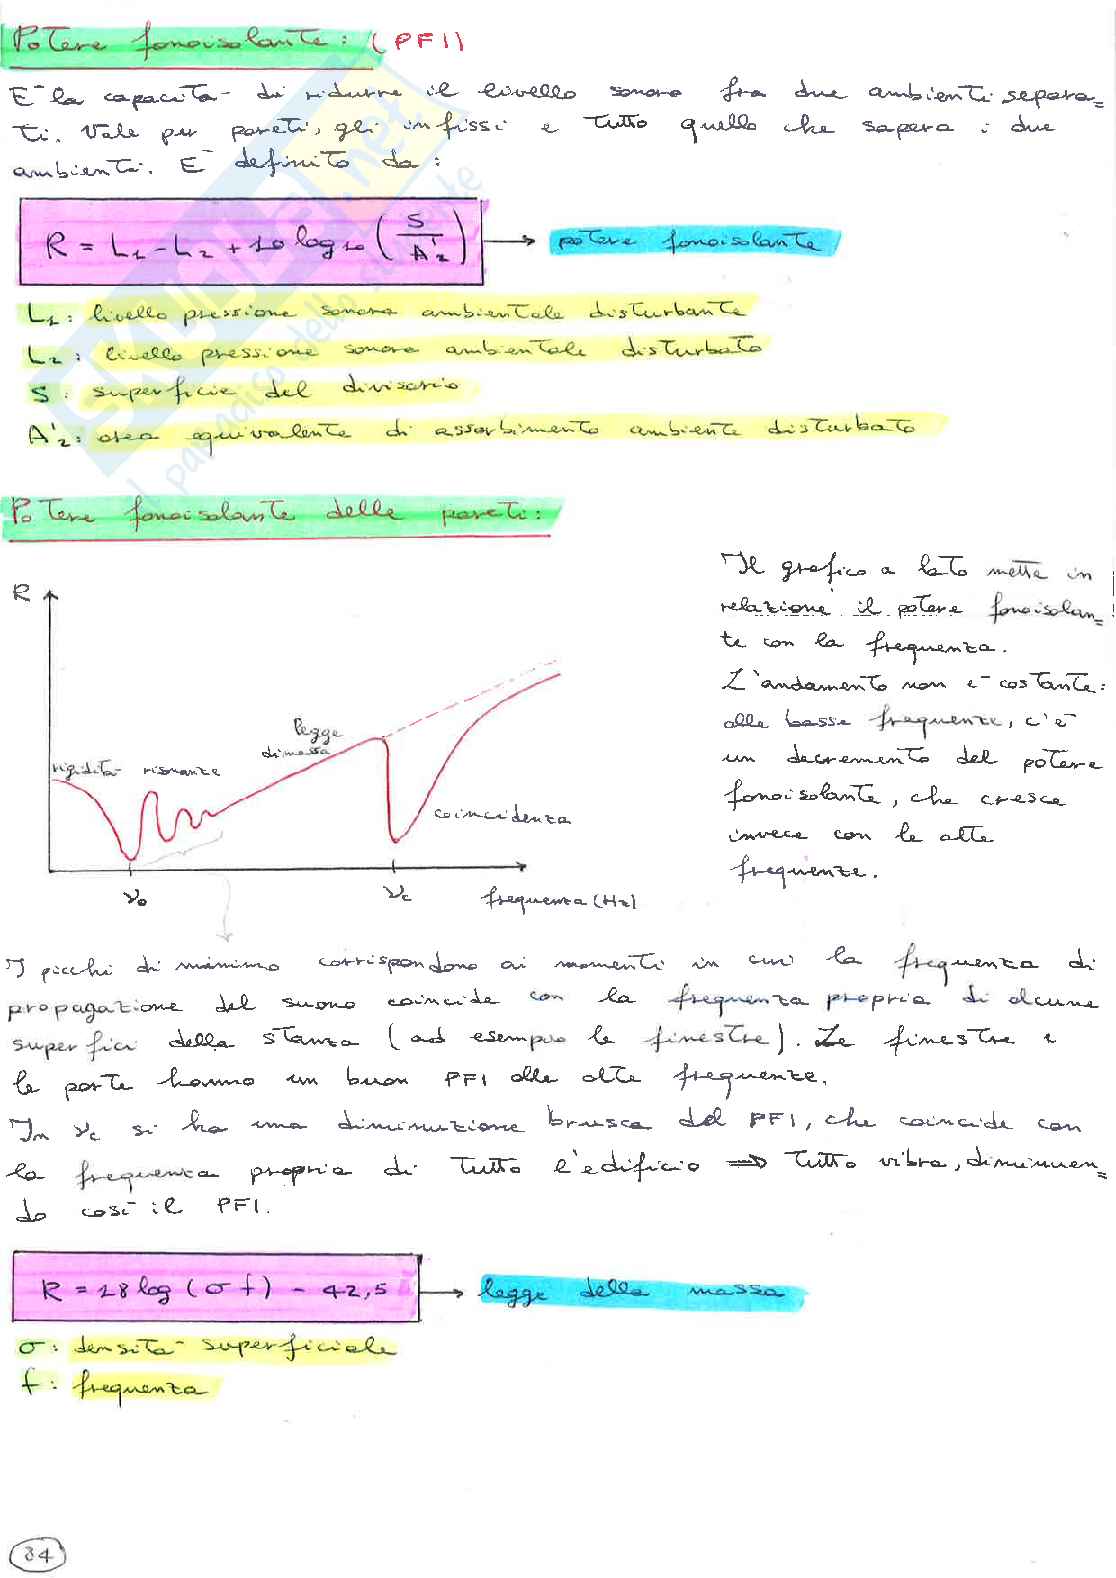 Potere fonoisolante: (PFI)
E' la capacità di ridurre il livello sonoro fra due ambienti separa=
ti. Vale per pareti, gli infissi e tutto quello che sapera i due
ambienti. E' definito da:
R = L1 - L2 + 10 log10 (S/A'2) → potere fonoisolante
L1: livello pressione sonora ambientale disturbante
L2: livello pressione sonora ambientale disturbato
S: superficie del divisorio
A'2: area equivalente di assorbimento ambiente disturbato
Potere fonoisolante delle pareti:
Il grafico a lato mette in
relazione il potere fonoisolan=
te con la frequenza.
L'andamento non è costante:
alle basse frequenze, c'è
un decremento del potere
fonoisolante, che cresce
invece con le alte
frequenze.
R
legge
di massa
rigidità risonanze
coincidenza
ν0 νc frequenza (Hz)
I picchi di minimo corrispondono ai momenti in cui la frequenza di
propagazione del suono coincide con la frequenza propria di alcune
superfici della stanza (ad esempio le finestre). Le finestre e
le porte hanno un buon PFI alle alte frequenze.
In νc si ha una diminuzione brusca del PFI, che coincide con
la frequenza propria di tutto l'edificio ⇒ tutto vibra, diminuen=
do così il PFI.
R = 18 log (σ f) - 42,5 → legge della massa
σ: densità superficiale
f: frequenza
34
SKUOLA.net
il paradiso dello studente